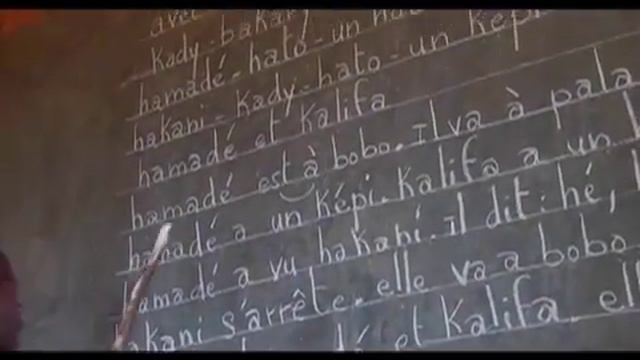 avec
Kady-bakary
hamadé-hato-un
hakani-Kady-hato-un képi
hamadé et Kalifa
hamadé est à bobo. Il va à pala
hamadé a un képi. Kalifa a un
hamadé a vu hakani. Il dit: hé,
hakani s'arrête. elle va a bobo
et Kalifa.